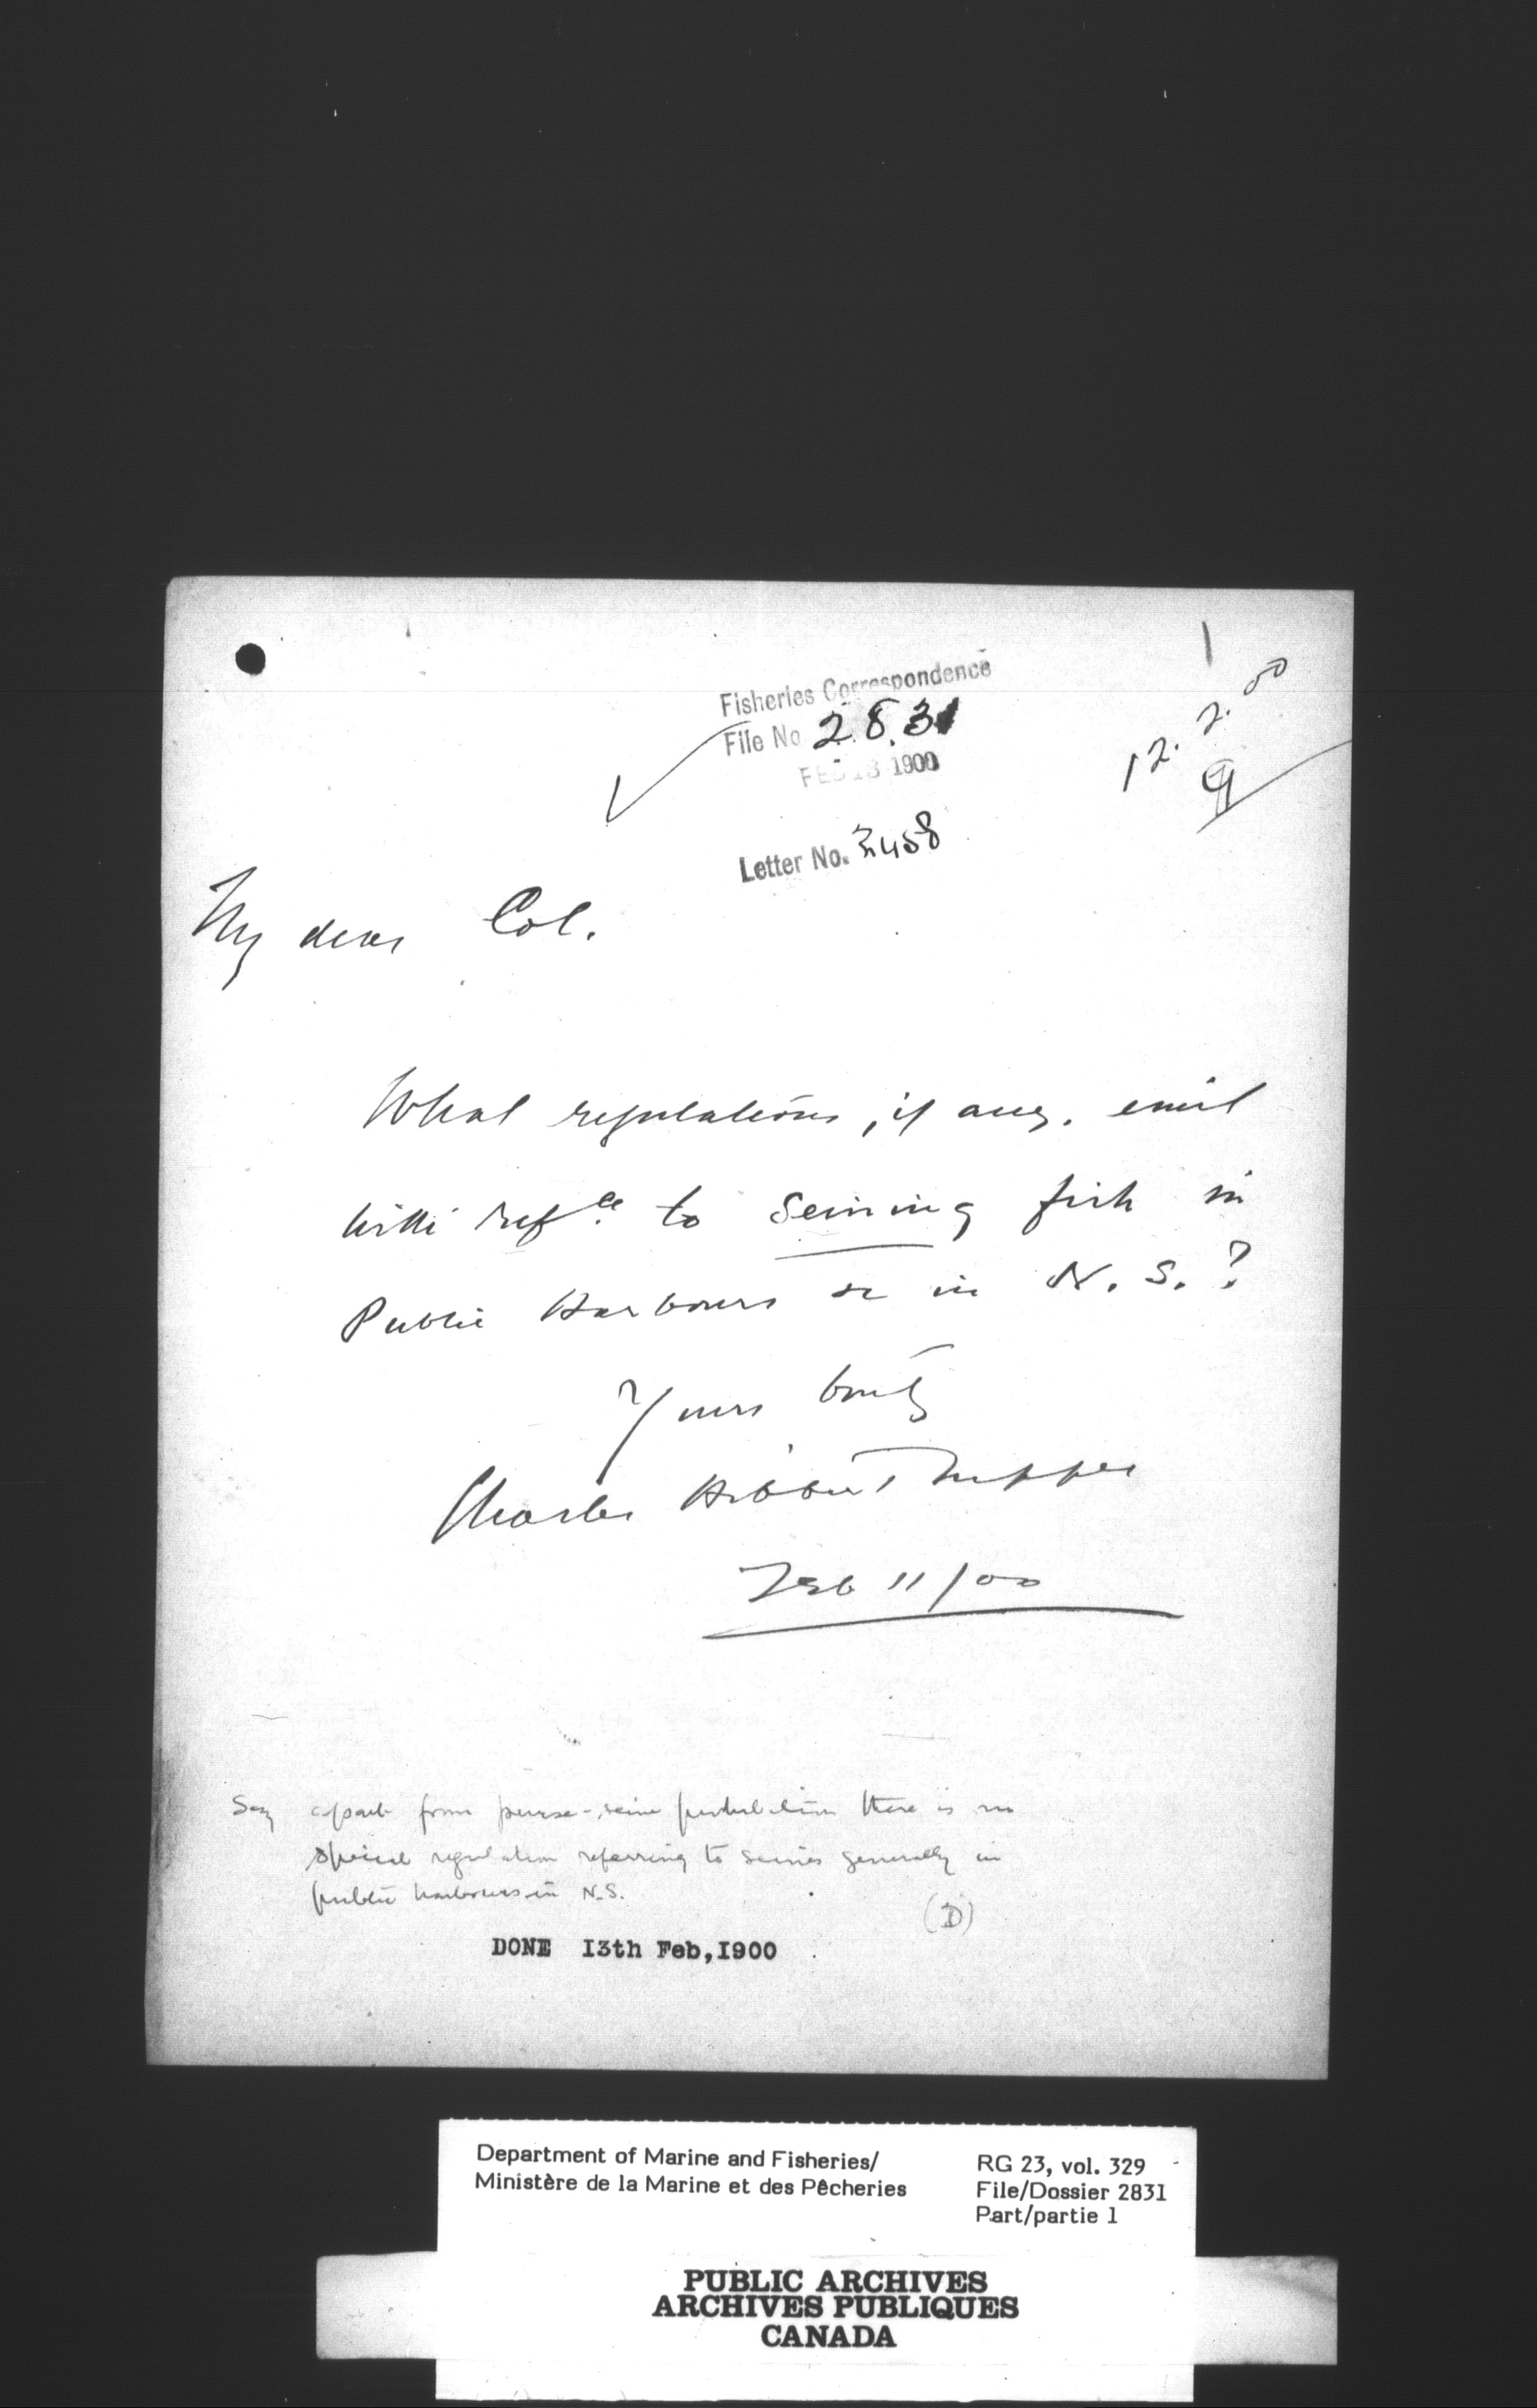 Fisheries Correspondence
File No 2831
FEB 13 1900
12.2.00
Letter No. 3458
My dear Col.
What regulations, if any, exist
with refce to Seining fish in
Public Harbours &c in N. S.?
Yours truly
Charles Hibbert Tupper
Feb 11/00
Say apart from purse-seine prohibition there is no
special regulation referring to seines generally in
public harbours in N.S.
(D)
DONE 13th Feb, 1900
Department of Marine and Fisheries/
Ministère de la Marine et des Pêcheries
RG 23, vol. 329
File/Dossier 2831
Part/partie 1
PUBLIC ARCHIVES
ARCHIVES PUBLIQUES
CANADA